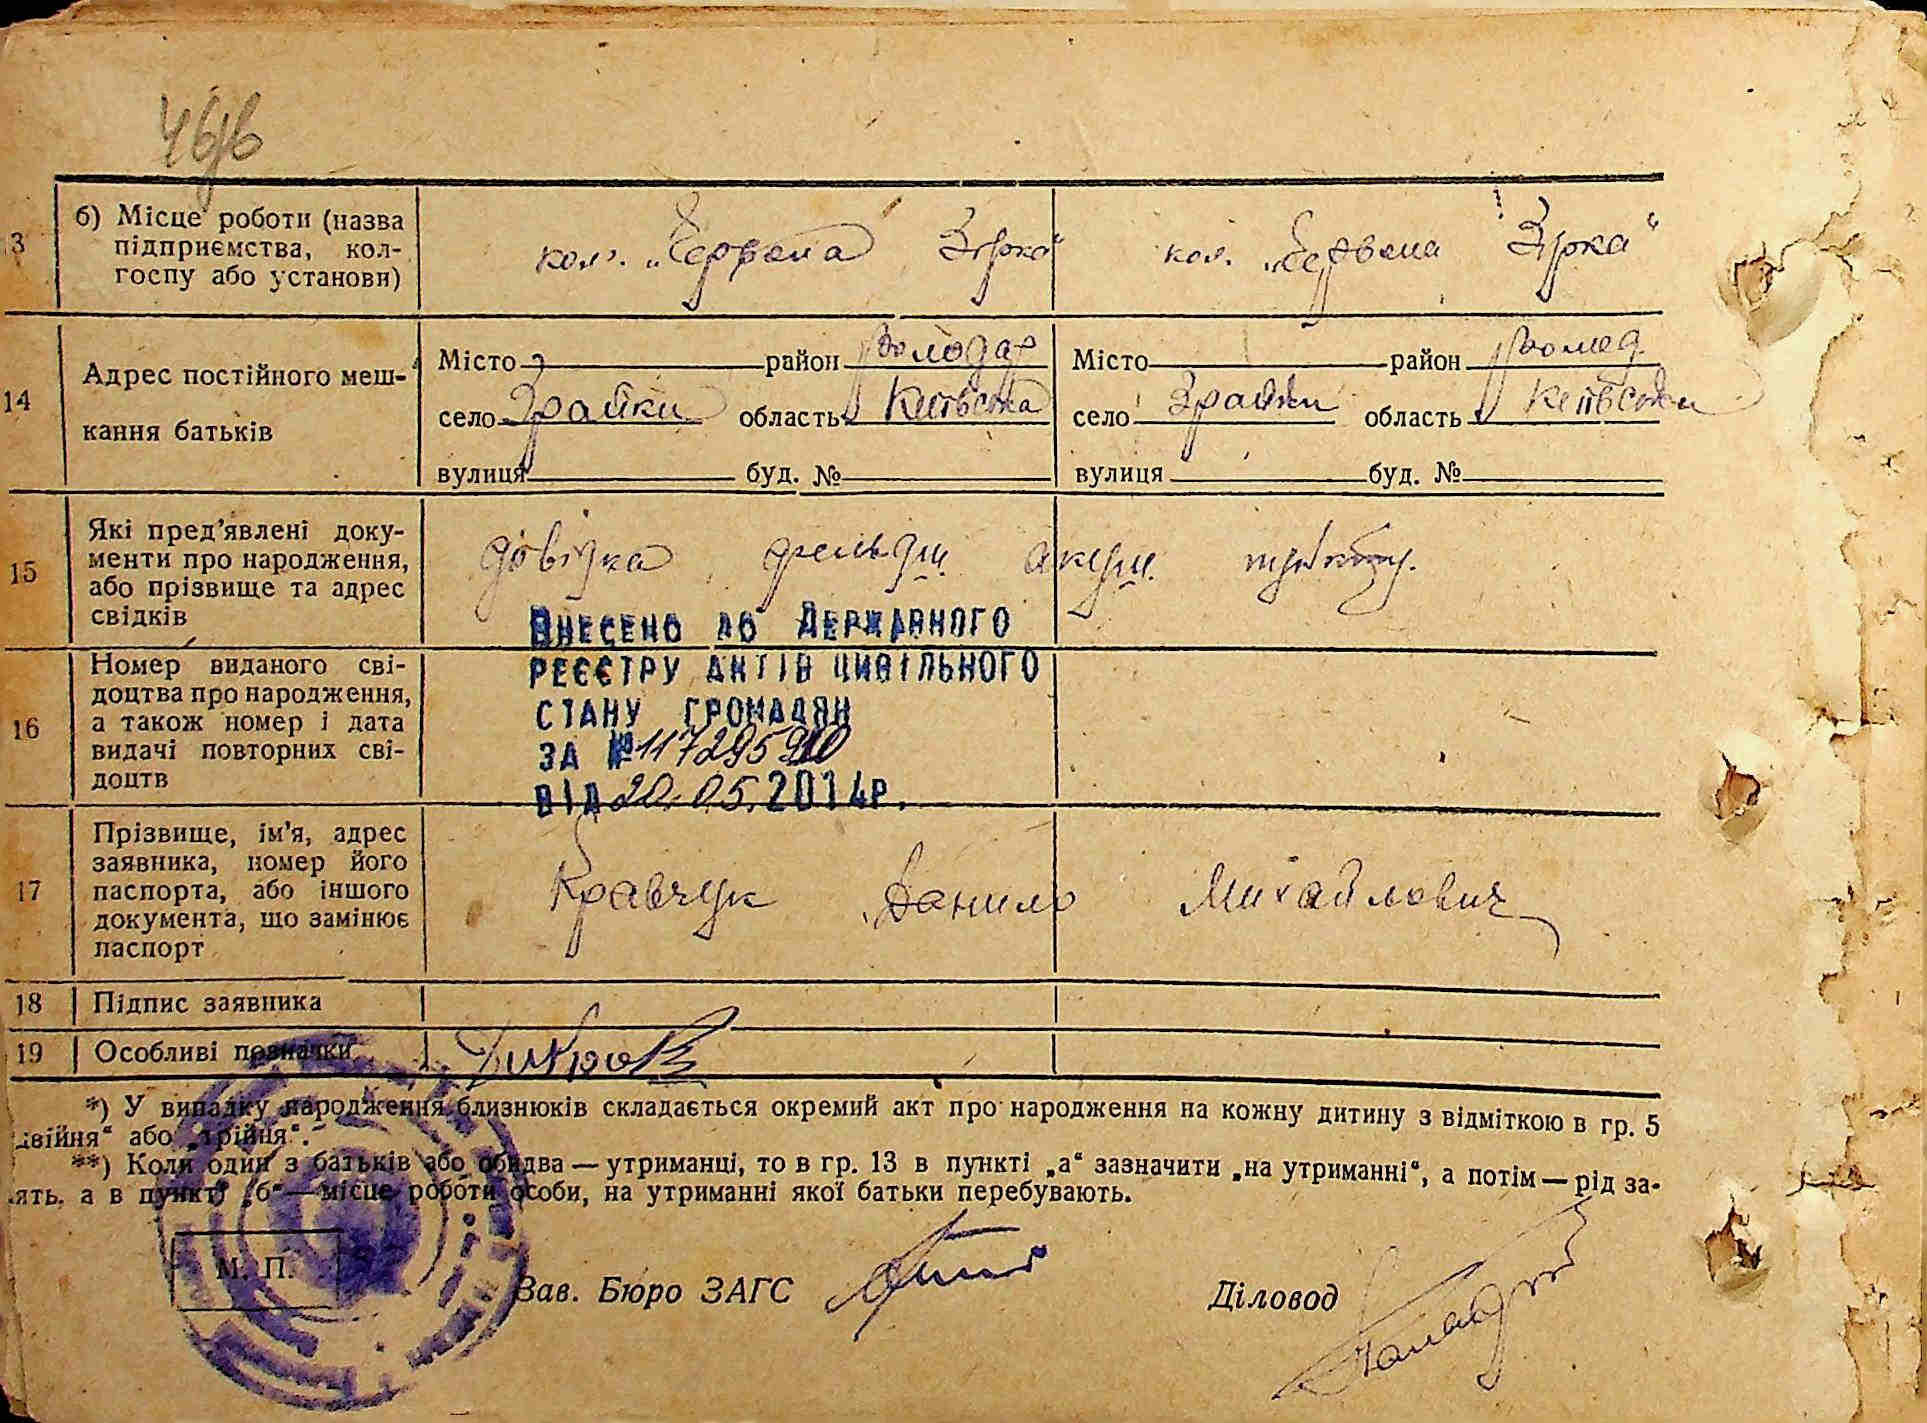 3
б) Місце роботи (назва
підприємства, кол-
госпу або установи)
кол. „Червона Зірка“
кол. „Червона Зірка“
14
Адрес постійного меш-
кання батьків
Місто район Володар
село Зрайки область Київська
вулиця буд. №
Місто район Волод
село Зрайки область Київська
вулиця буд. №
15
Які пред’явлені доку-
менти про народження,
або прізвище та адрес
свідків
довідка фельдш акуш пункту.
16
Номер виданого сві-
доцтва про народження,
а також номер і дата
видачі повторних сві-
доцтв
ВНЕСЕНО ДО ДЕРЖАВНОГО
РЕЄСТРУ АКТІВ ЦИВІЛЬНОГО
СТАНУ ГРОМАДЯН
ЗА №
ВІД 20.05.2014р.
17
Прізвище, ім’я, адрес
заявника, номер його
паспорта, або іншого
документа, що замінює
паспорт
Кравчук Данило Михайлович
18
Підпис заявника
19
Особливі позначки
*) У випадку народження близнюків складається окремий акт про народження на кожну дитину з відміткою в гр. 5
двійня“ або „трійня“.
**) Коли один з батьків або обидва — утриманці, то в гр. 13 в пункті „а“ зазначити „на утриманні“, а потім — рід за-
ять, а в пункті „б“ — місце роботи особи, на утриманні якої батьки перебувають.
М. П.
Зав. Бюро ЗАГС
Діловод